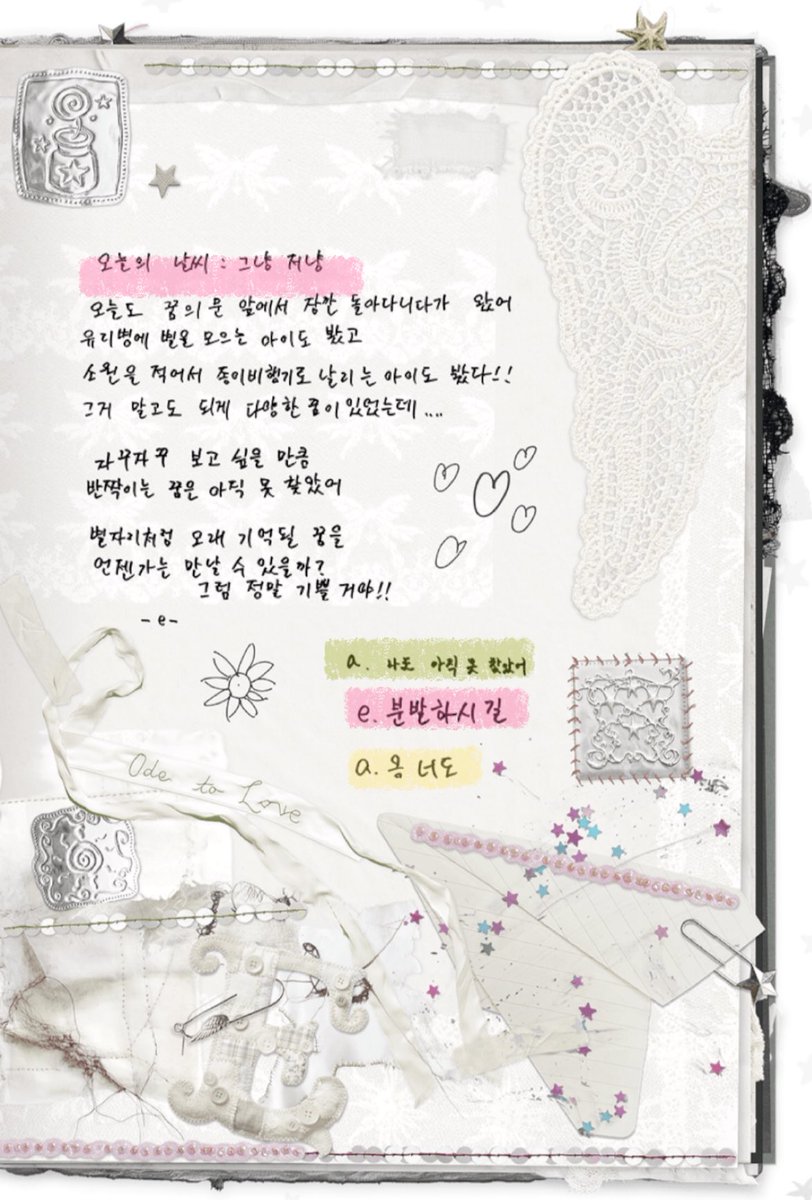 오늘의 날씨 : 그냥 저냥
오늘도 꿈의 문 앞에서 잠깐 돌아다니다가 왔어
유리병에 별을 모으는 아이도 봤고
소원을 적어서 종이비행기로 날리는 아이도 봤다!!
그거 말고도 되게 다양한 꿈이 있었는데....
자꾸자꾸 보고 싶을 만큼
반짝이는 꿈은 아직 못 찾았어
별자리처럼 오래 기억될 꿈을
언젠가는 만날 수 있을까?
그럼 정말 기쁠 거야!!
- e -
a. 나도 아직 못 찾았어
e. 분발하시길
a. 옹 너도
Ode to Love